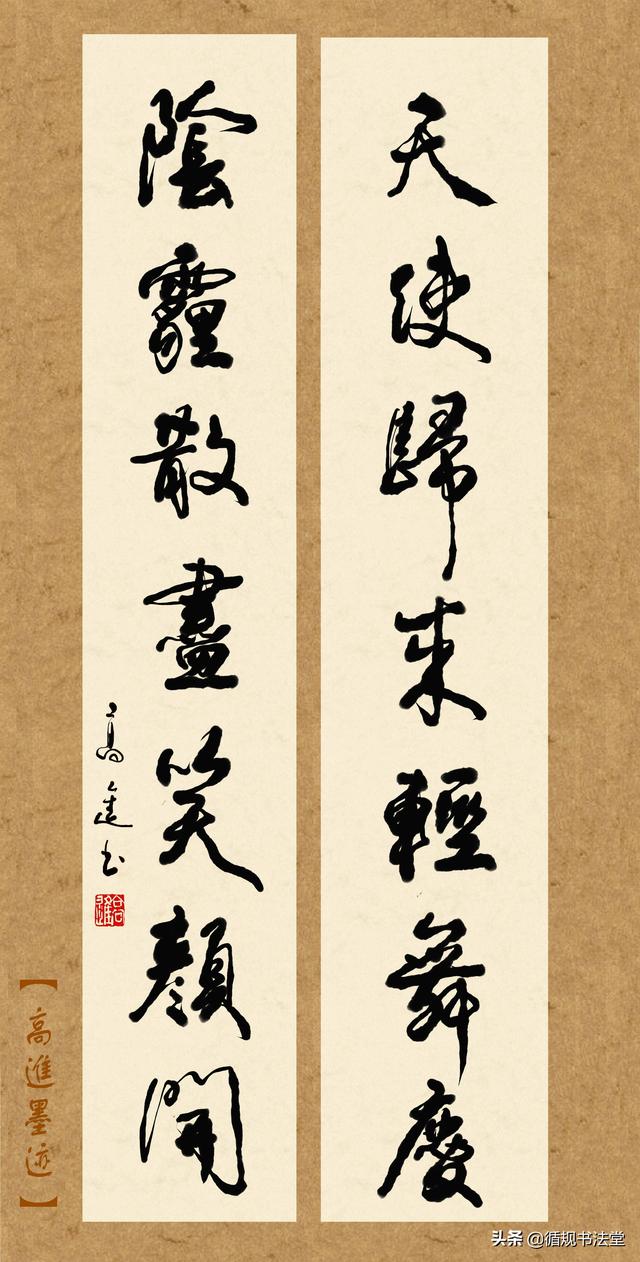 天使歸來輕舞慶
陰霾散盡笑顏開
高進书
【高進墨迹】
头条 @循规书法堂